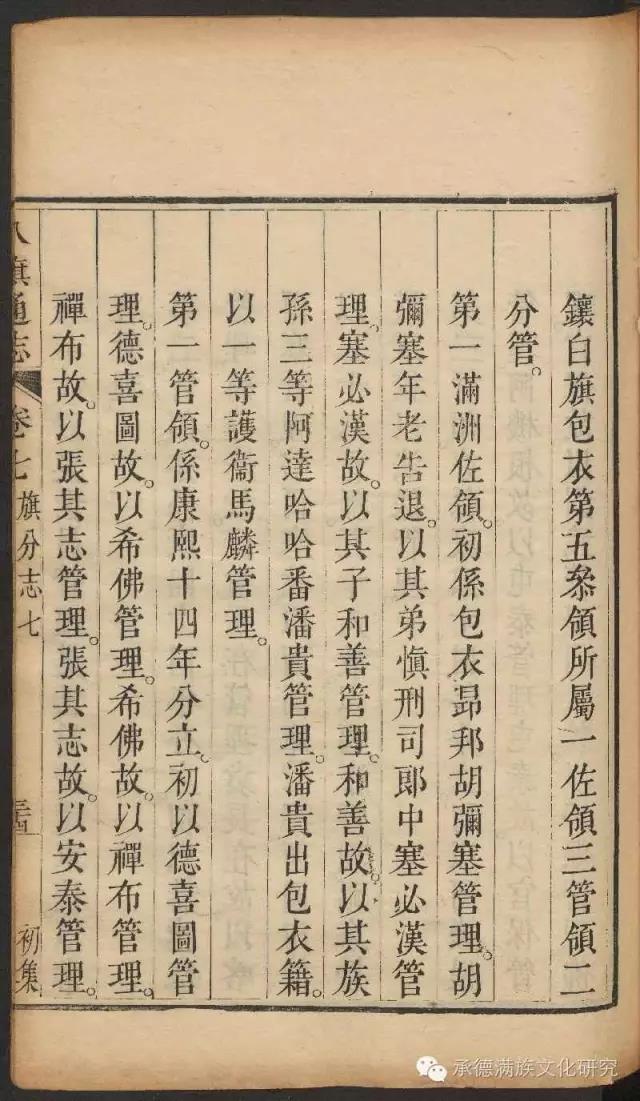 鑲白旗包衣第五叅領所屬一佐領三管領二
分管。
第一滿洲佐領。初係包衣昻邦胡彌塞管理。胡
彌塞年老告退。以其弟愼刑司郎中塞必漢管
理。塞必漢故。以其子和善管理。和善故。以其族
孫三等阿達哈哈番潘貴管理。潘貴出包衣籍。
以一等護衞馬麟管理。
第一管領。係康熙十四年分立。初以德喜圖管
理。德喜圖故。以希佛管理。希佛故。以禪布管理。
禪布故。以張其志管理。張其志故。以安泰管理。
八旗通志 卷七 旗分志七 初集
承德满族文化研究